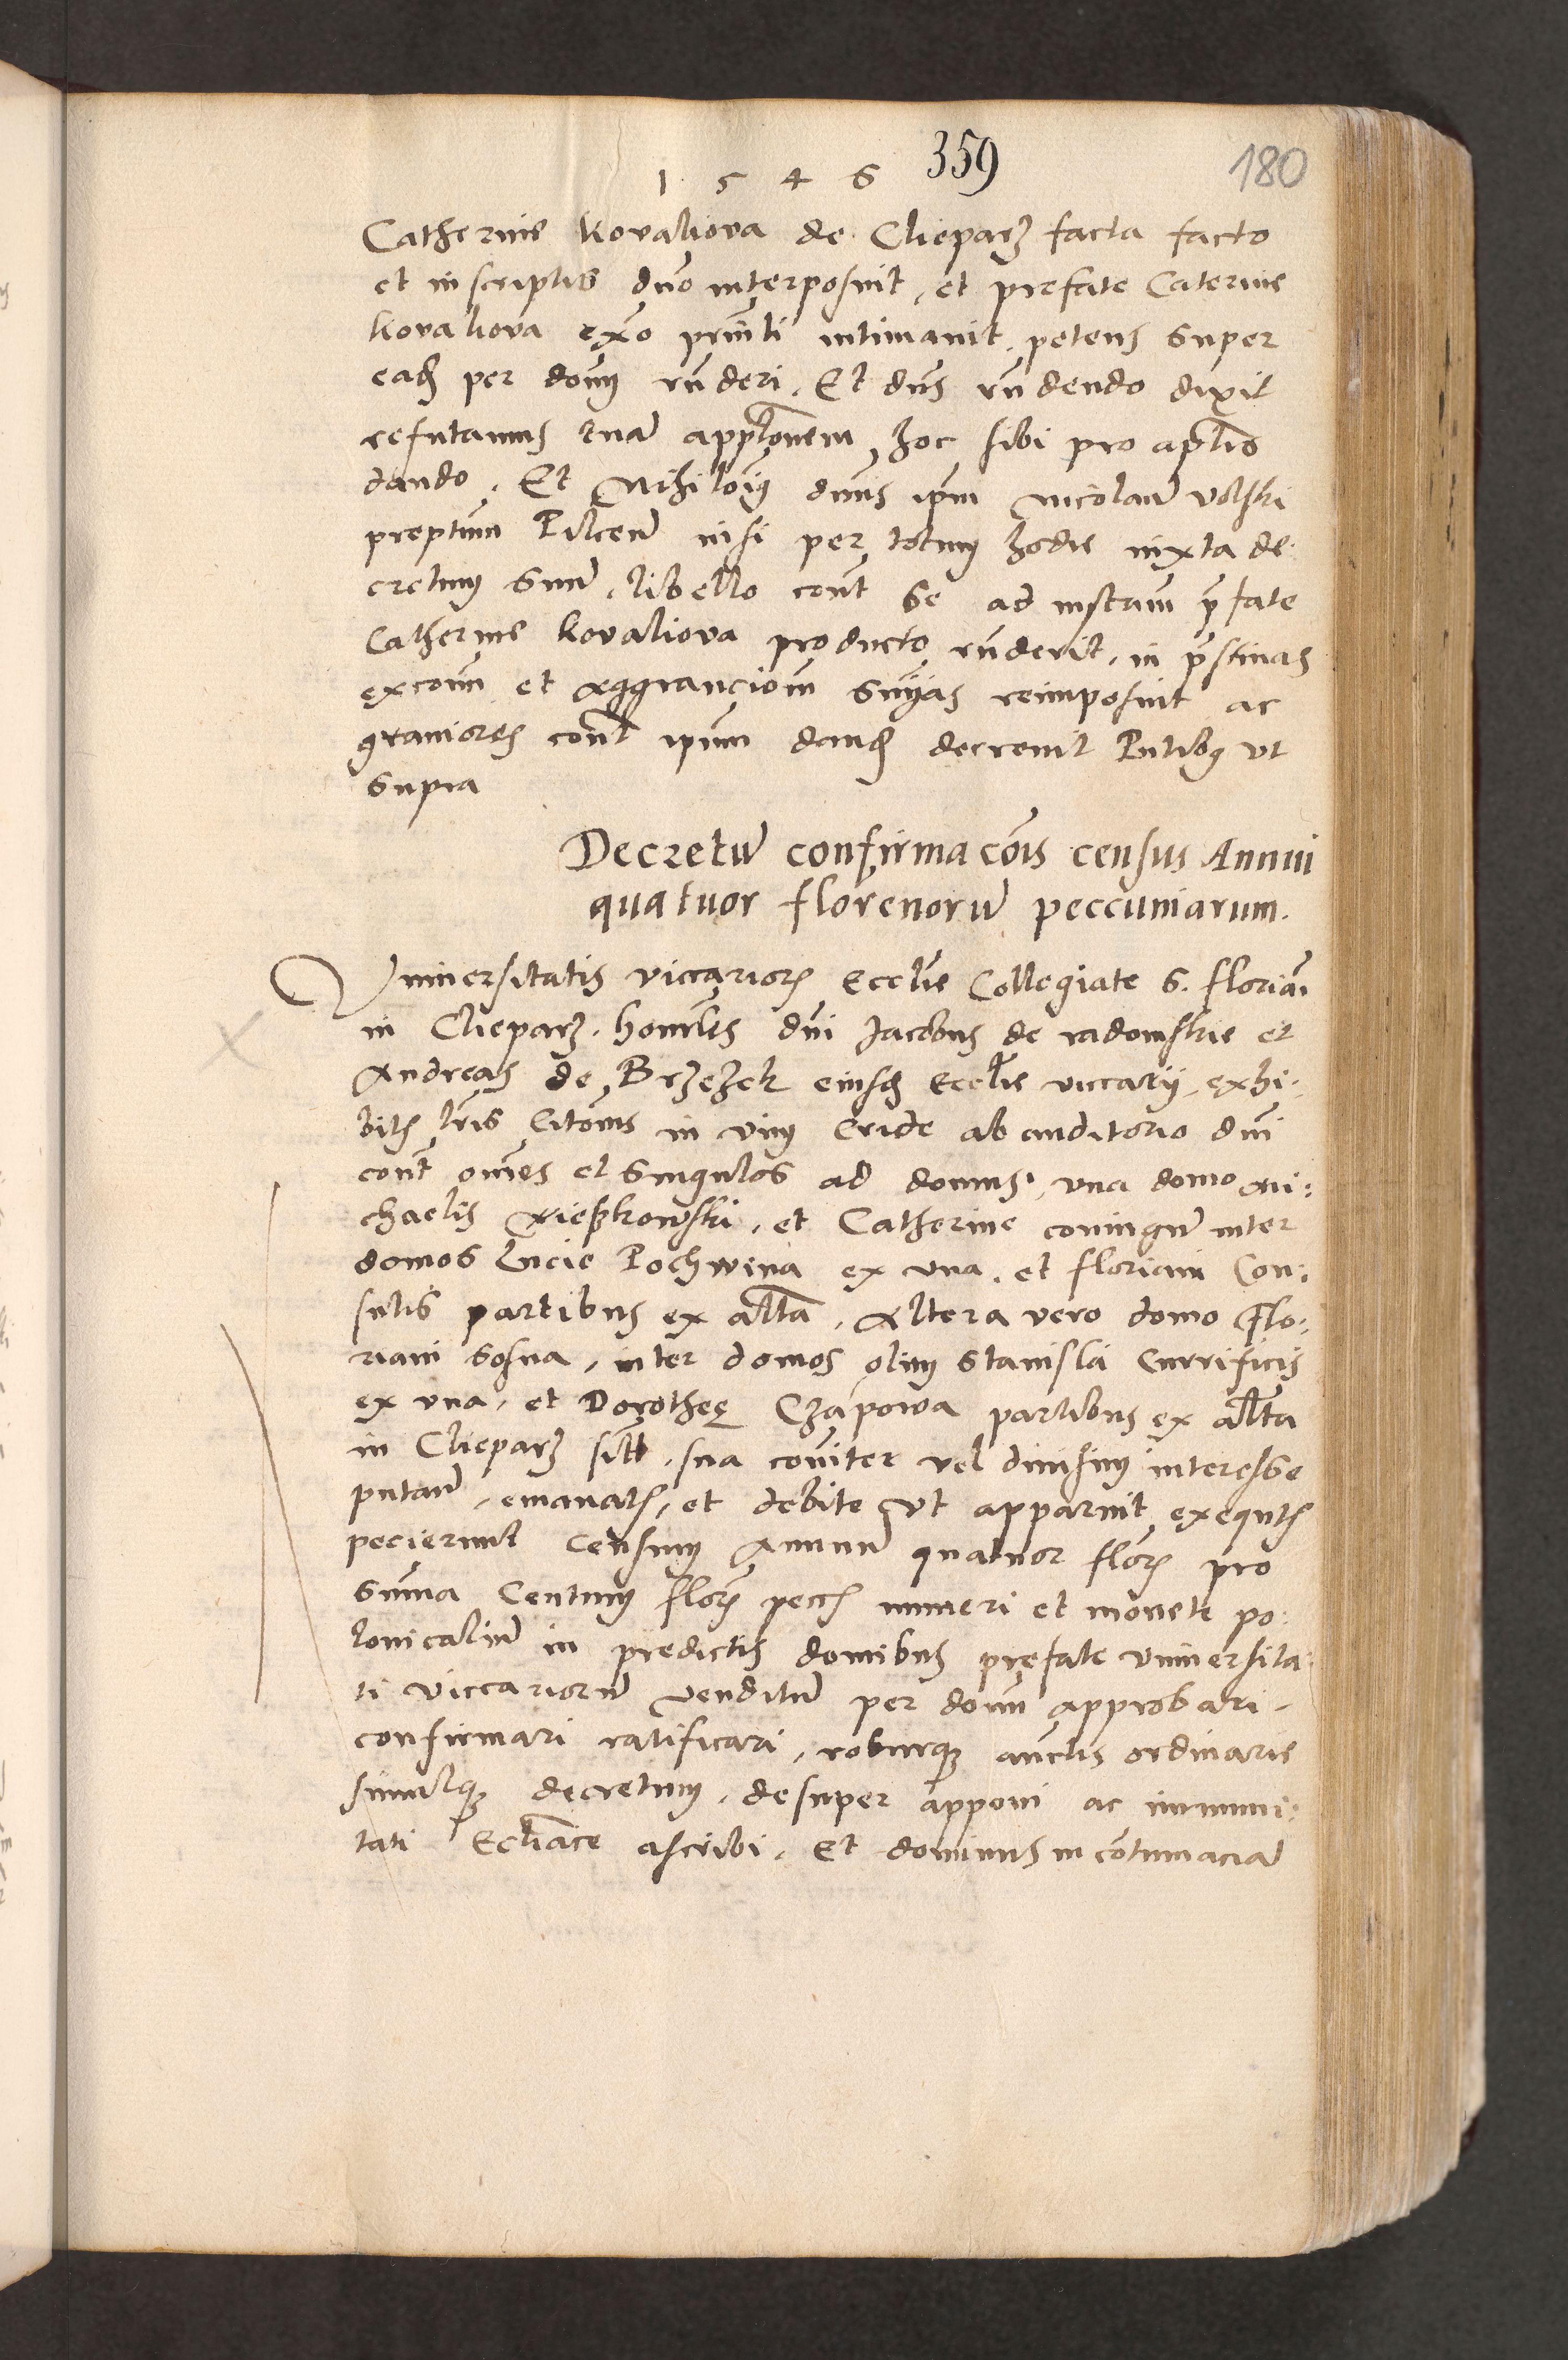 359
180
1 5 4 6
Catherine Kovaliova de Clieparz facta facto
et in scriptis dno interposuit, et prefate Caterine
Kovaliova ex o pnti intimavit, petens super
ead per dom rnderi. Et dns rndendo dixit
refutamus tuam applonem, hoc sibi pro aplis
dando. Et Nihilomi dnus ipm Nicolaum Volski
preptum Pilcen nisi per totum hodie iuxta de
cretum suum, libello cont se ad instam pfate
Catherine Kovaliova producto rnderit, in pstinas
excom et aggravaciom snias reimposuit ac
graviores cont ipum dand decrevit Pntibus ut
supra
Decretum confirmacois census Annui
quatuor florenorum peccuniarum.
Universitatis viccarior Ecclie Collegiate S. Floriani
in Clieparz. honorbles dni Jacobus de radomskie et
Andreas de Brzezek eiusd Ecclie viccarii, exhi:
bit lris Citoms in vim Cride ab auditorio dni
cont omnes et singulos ad domus, una domo Mi:
chaelis Rieszkowski, et Catherine coniugum inter
domos Lucie Pochwina ex una, et Floriani Con:
sulis partibus ex altra, Altera vero domo Flo:
riani Sosna, inter domos olim Stanislai Currificis
ex una, et Dorothee Czapowa partibus ex altra
in Clieparz sitt, sua comiter vel divisim interesse
putan, emanat, et debite ut apparuit exequt
pecierunt Censum Annuum quatuor flor pro
summa Centum flor pecc numeri et monete po:
lonicalium in predictis domibus prefate Universita:
ti viccariorum venditum per dom approbari,
confirmari ratificari, roburque auctis ordinarie
simulque decretum, desuper apponi ac immuni:
tati Eccliastice ascribi. Et dominus in contumaciam